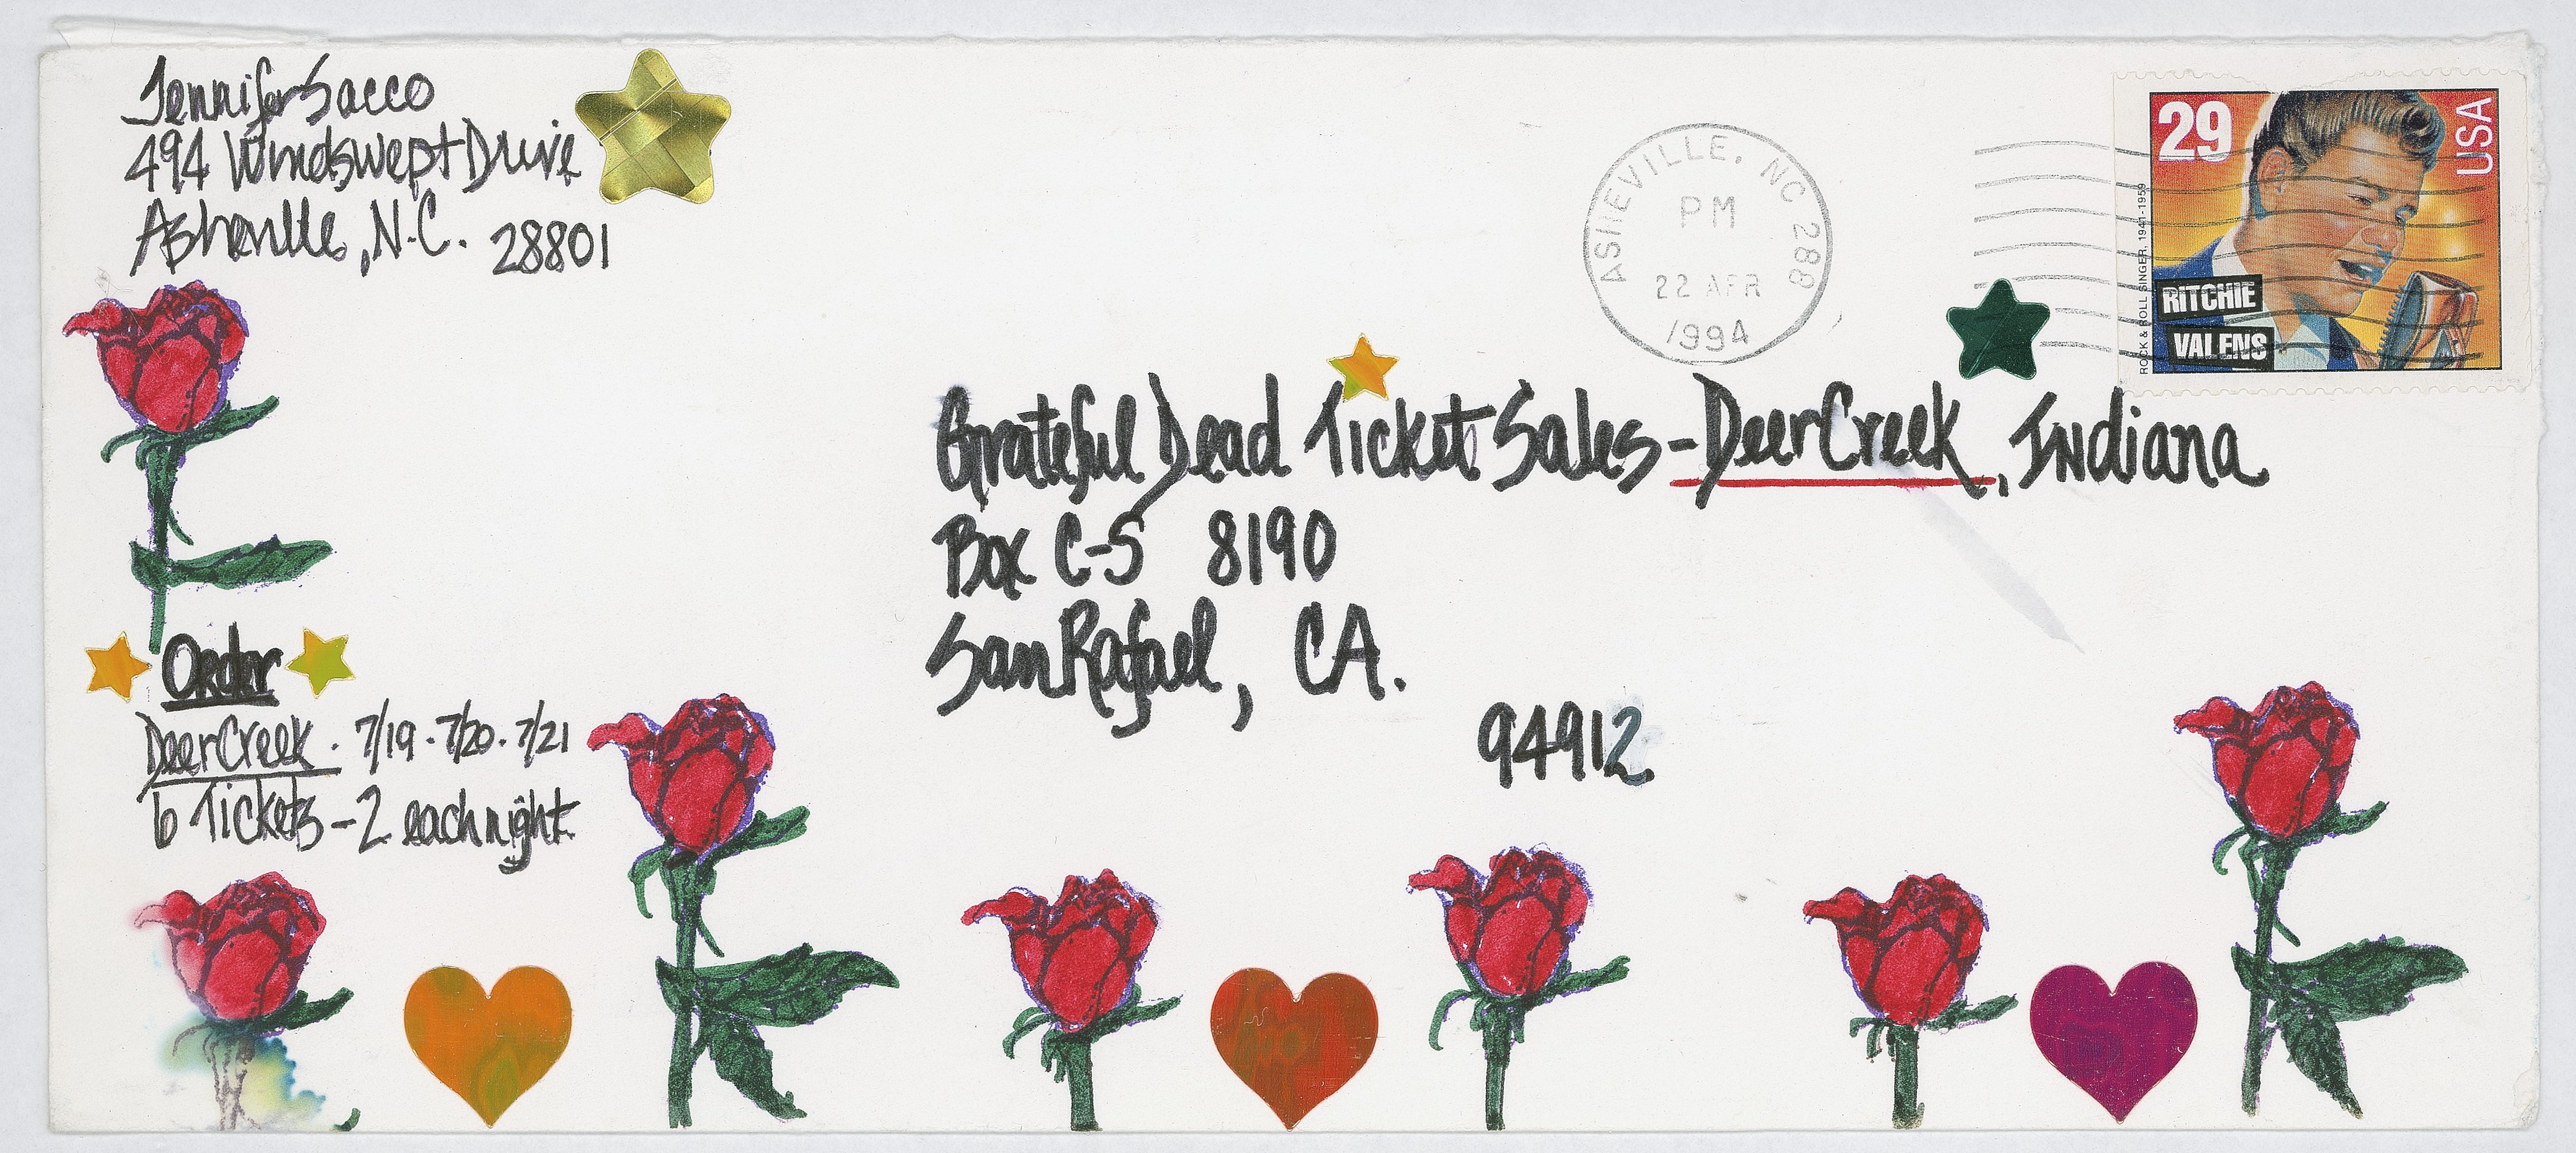 Jennifer Sacco
494 Windswept Drive
Asheville, N.C. 28801
ASHEVILLE, NC 288
PM
22 APR
1994
29
USA
ROCK & ROLL SINGER, 1941-1959
RITCHIE
VALENS
Grateful Dead Ticket Sales - Deer Creek, Indiana
Box C-S 8190
San Rafael, CA.
94912
Order
Deer Creek . 7/19 . 7/20 . 7/21
6 Tickets - 2 each night